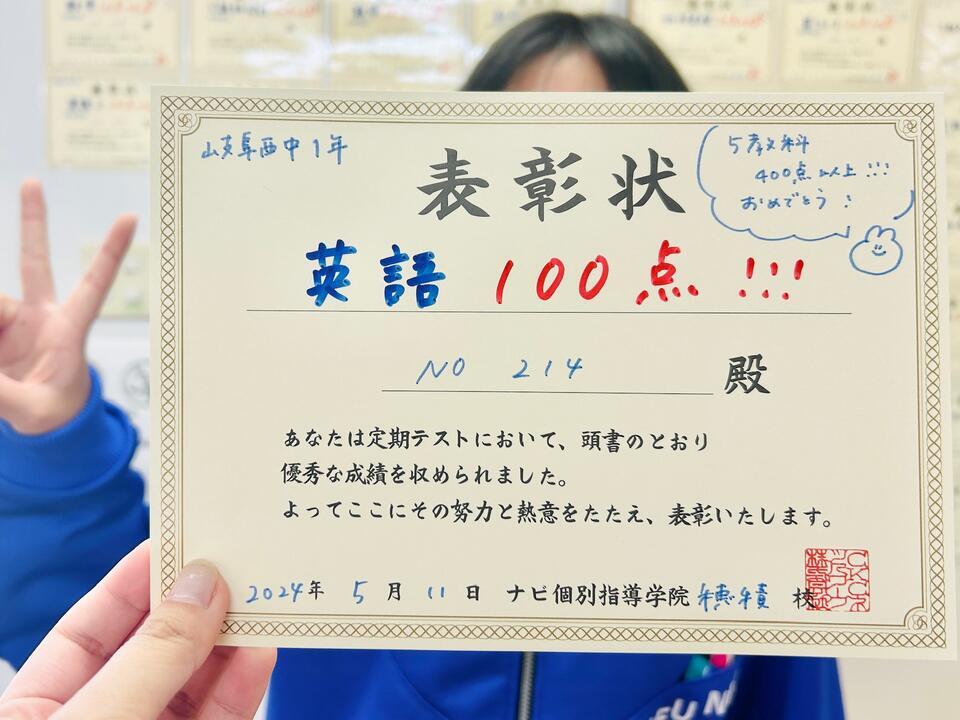 岐阜西中1年
表彰状
5教科
400点以上!!!
おめでとう!
英語 100点!!!
NO 214 殿
あなたは定期テストにおいて、頭書のとおり
優秀な成績を収められました。
よってここにその努力と熱意をたたえ、表彰いたします。
2024年 5月 11日 ナビ個別指導学院 穂積 校